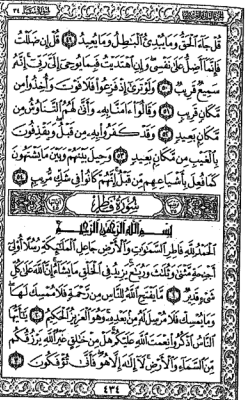 قُلْ جَآءَ ٱلْحَقُّ وَمَا يُبْدِئُ ٱلْبَٰطِلُ وَمَا يُعِيدُ ٤٩ قُلْ إِن ضَلَلْتُ
فَإِنَّمَآ أَضِلُّ عَلَىٰ نَفْسِى وَإِنِ ٱهْتَدَيْتُ فَبِمَا يُوحِىٓ إِلَىَّ رَبِّىٓ إِنَّهُۥ
سَمِيعٌ قَرِيبٌ ٥٠ وَلَوْ تَرَىٰٓ إِذْ فَزِعُوا۟ فَلَا فَوْتَ وَأُخِذُوا۟ مِن
مَّكَانٍ قَرِيبٍ ٥١ وَقَالُوٓا۟ ءَامَنَّا بِهِۦ وَأَنَّىٰ لَهُمُ ٱلتَّنَاوُشُ مِن
مَّكَانٍۭ بَعِيدٍ ٥٢ وَقَدْ كَفَرُوا۟ بِهِۦ مِن قَبْلُ وَيَقْذِفُونَ
بِٱلْغَيْبِ مِن مَّكَانٍۭ بَعِيدٍ ٥٣ وَحِيلَ بَيْنَهُمْ وَبَيْنَ مَا يَشْتَهُونَ
كَمَا فُعِلَ بِأَشْيَاعِهِم مِّن قَبْلُ إِنَّهُمْ كَانُوا۟ فِى شَكٍّ مُّرِيبٍۭ ٥٤
سُورَةُ فَاطِرٍ
بِسْمِ ٱللَّهِ ٱلرَّحْمَٰنِ ٱلرَّحِيمِ
ٱلْحَمْدُ لِلَّهِ فَاطِرِ ٱلسَّمَٰوَٰتِ وَٱلْأَرْضِ جَاعِلِ ٱلْمَلَٰٓئِكَةِ رُسُلًا أُو۟لِىٓ
أَجْنِحَةٍ مَّثْنَىٰ وَثُلَٰثَ وَرُبَٰعَ يَزِيدُ فِى ٱلْخَلْقِ مَا يَشَآءُ إِنَّ ٱللَّهَ عَلَىٰ كُلِّ
شَىْءٍ قَدِيرٌ ١ مَّا يَفْتَحِ ٱللَّهُ لِلنَّاسِ مِن رَّحْمَةٍ فَلَا مُمْسِكَ لَهَا
وَمَا يُمْسِكْ فَلَا مُرْسِلَ لَهُۥ مِنۢ بَعْدِهِۦ وَهُوَ ٱلْعَزِيزُ ٱلْحَكِيمُ ٢ يَٰٓأَيُّهَا
ٱلنَّاسُ ٱذْكُرُوا۟ نِعْمَتَ ٱللَّهِ عَلَيْكُمْ هَلْ مِنْ خَٰلِقٍ غَيْرُ ٱللَّهِ يَرْزُقُكُم
مِّنَ ٱلسَّمَآءِ وَٱلْأَرْضِ لَآ إِلَٰهَ إِلَّا هُوَ فَأَنَّىٰ تُؤْفَكُونَ ٣
٤٣٤